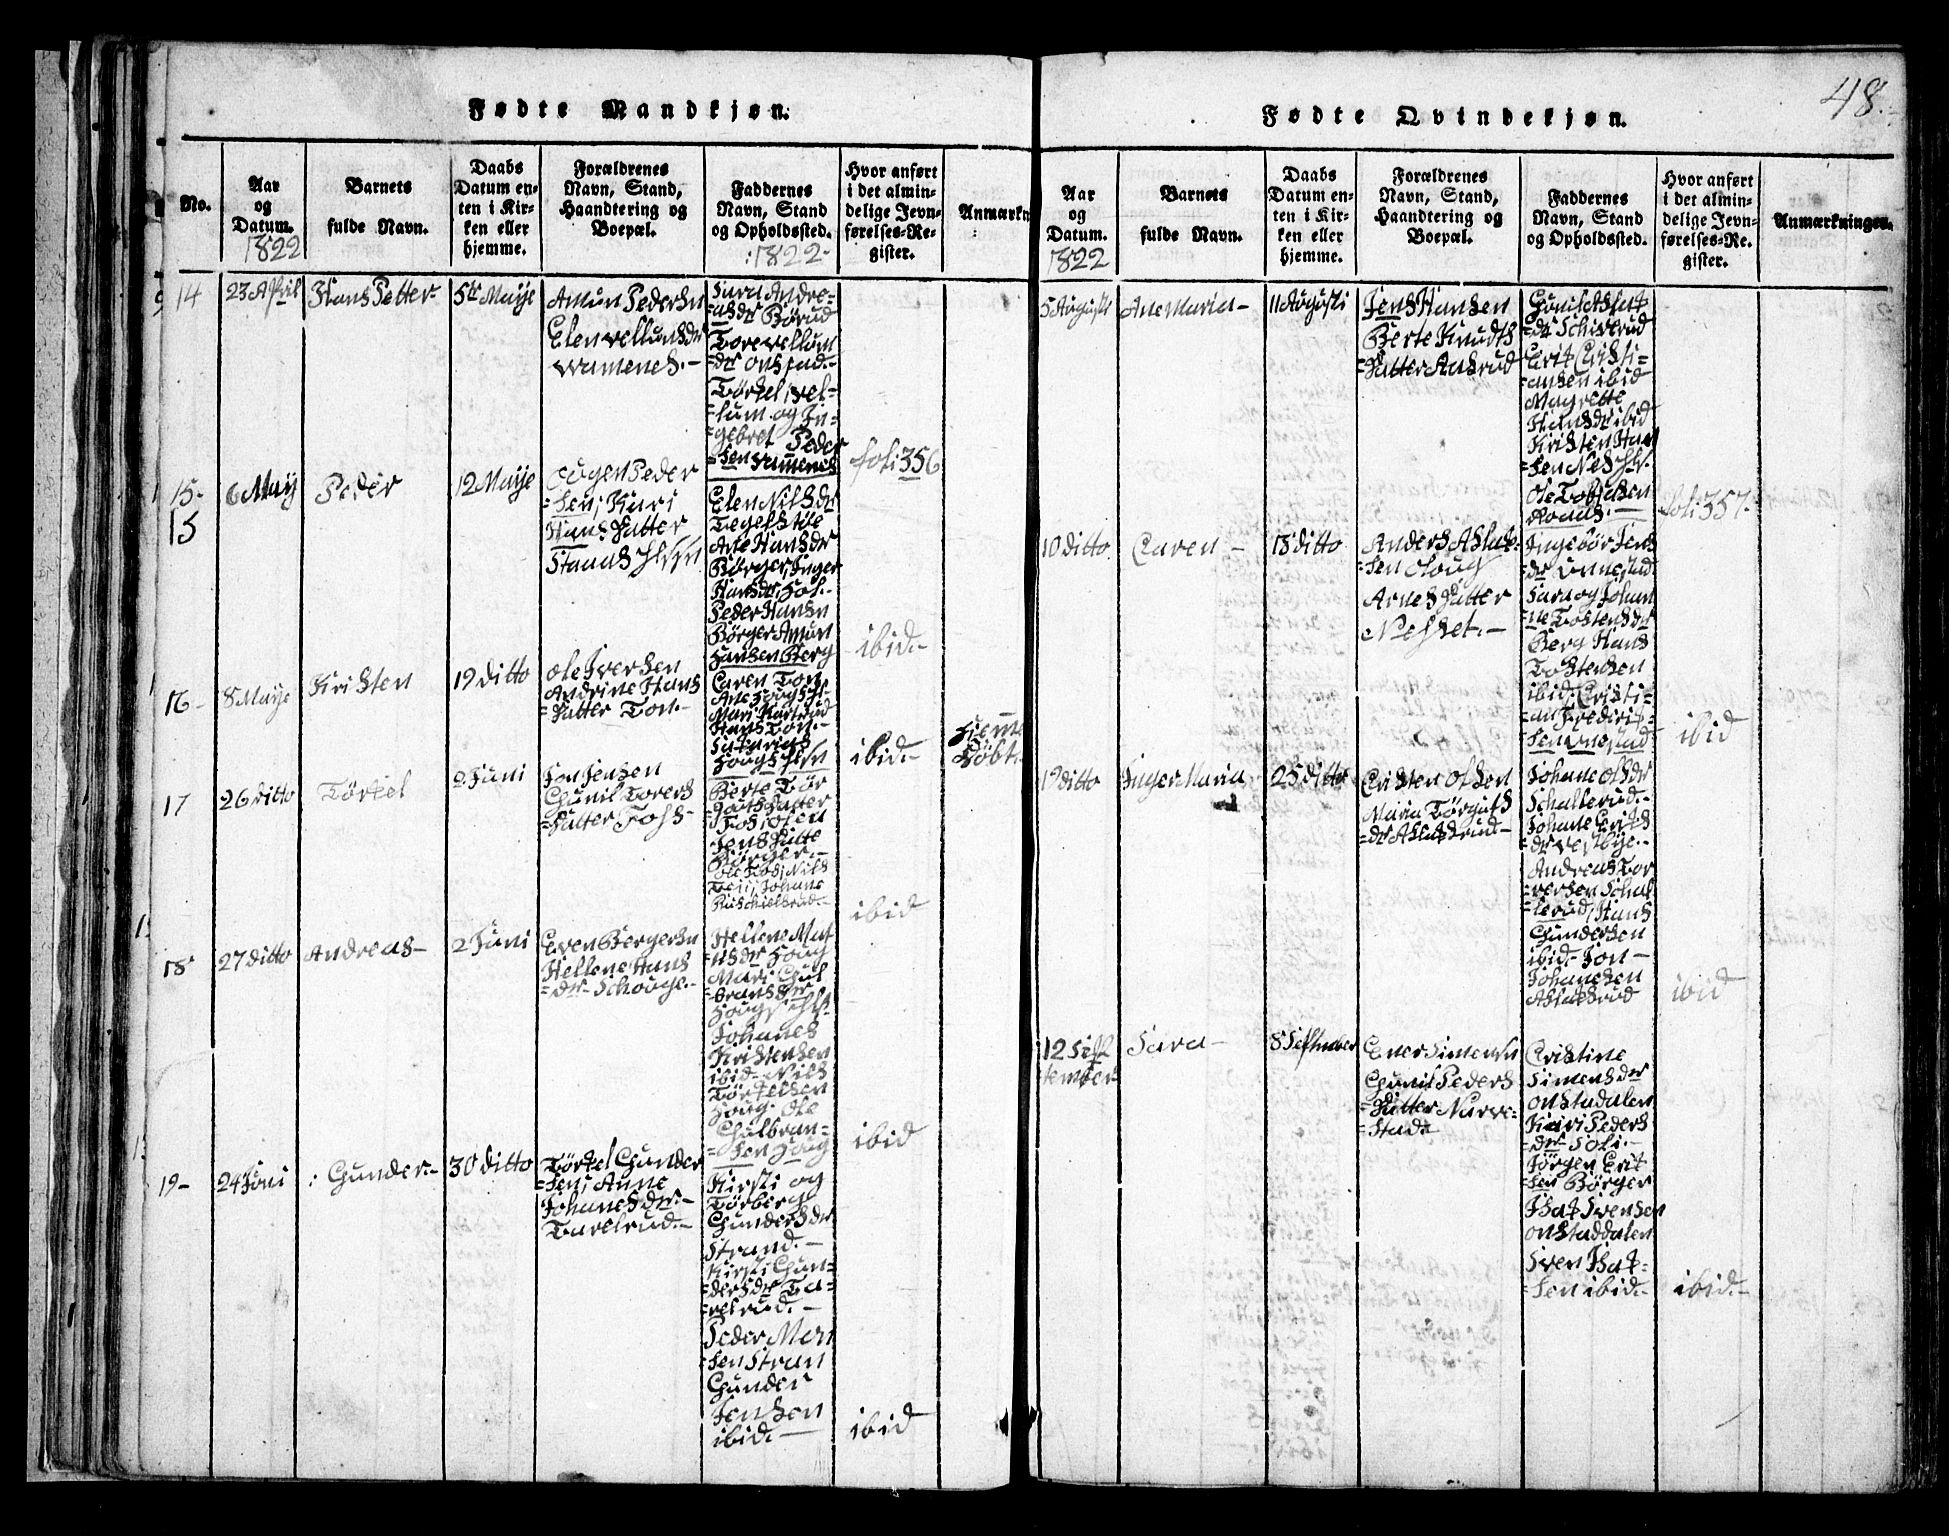 48.
Fødte Mandkjøn.
No.
Aar
og
Datum.
1822
Barnets
fulde Navn.
Daabs
Datum en-
ten i Kir-
ken eller
hjemme.
Forældrenes
Navn, Stand,
Haandtering og
Boepæl.
Faddernes
Navn, Stand
og Opholdssted.
:1822-
Hvor anført
i det almin-
delige Jevn-
førelses-Re-
gister.
Anmærkn
14
23 April
Hans Petter-
5te Maye
Amun Pedersen
Elen vellumsdr
Wamenes.-
Sara Andre-
=asdr Børud
Tore vellum
=dr onstad.-
Törkel vel-
=lum og In-
=gebret Peder
=sen vamenes
foli 356
15-
15
6 May
Peder
12 Maye
Peder
=sen, Kari
Hans Datter
Elen Nilsdr
Tegelstöe
Ane Hansdr
Börger, Inger
Hansdr, Hol.-
Peder Hansn
Börger Amun
Hansen Berg
ibid.-
16-
8 Maye
Kristen
19 ditto
Ole Iversen
Andrine Hans
=Datter Ton.-
Caren Ton
Hans Ton.-
ibid.-
Hieme
Döbt.
17
26 ditto
Törkel
2 Juni
Jon Jensen
Gunil Torers
=Datter Foss-
Berte Tor
Ole Foss, Nils
ibid
18
27 ditto
Andreas-
2 Juni
Even Bergersn
Hellene Hans
=dr- Schouge.-
Hellene Mat
=isdr Houg
Mari Gul
=bransdr
Johanes
Kristensen
ibid- Nils
Törkelsen
Houg. Ole
Gulbran-
=sen Houg
ibid
19-
24 Juni
: Gunder.-
30 ditto
Törkel Gunder
=sen, Anne
Johanesdr.-
Tarelrud.-
Kirsti og
Törberg
Gundersdr
Strand.-
Kirsti Gun-
=dersdr Ta-
=relrud.-
Peder Men
=sen Stran
Gunder
Jensen
ibid.-
ibid
Fødte Qvindekjøn.
Aar
og
Datum.
1822
Barnets
fulde Navn.
Daabs
Datum en-
ten i Kir-
ken eller
hjemme.
Forældrenes
Navn, Stand,
Haandtering og
Boepæl.
Faddernes
Navn, Stand
og Opholdssted.
Hvor anført
i det almin-
delige Jevn-
førelses-Re-
gister.
Anmærkninger.
5 Augusti
Ane Maria-
11 Augusti
Jens Hansen
Berte Knudts
=Datter Aasrud
Gunil Aslak
=dr Schiverud
Erik Cristi=
=ansen ibid
Magrette
Hansdr ibid
Kristen Han
=sen
Ole Tobiasen
foli 357.-
10 ditto
Caren-
18 ditto
Anders Aslak=
=sen Cloug
Arnes Datter
Nesset.-
Ingebör Jens
=dr Unnestad
Sara og Johan
=ne Tostensdr
Berg Hans
Tostensen
ibid. Cristi-
=an Frederik-
=sen Unestad
ibid
19 ditto
Inger Maria
25 ditto
Cristen Olsen
Maria Törguls
=dr Aslakrud-
Johane Olsdr
Schallerud.-
Johane Eriks
=dr vestbye.-
Andreas Tor
=versen Schal
=lerud, Hans
Gundersen
ibid- Jon-
Johanesen
Aslakrud
ibid
12 Sep
=tember-
Sara-
8 September
Ener Simensn
Gunil Peders
=Datter Narve-
=stad.
Cristine
Simensdr
Onstadalen
Kari Peders
=dr- Soli.-
Jörgen Erik
=sen Börger
Isak Svensen
Onstaddalen
Sven Isak-
=sen ibid.-
ibid.-